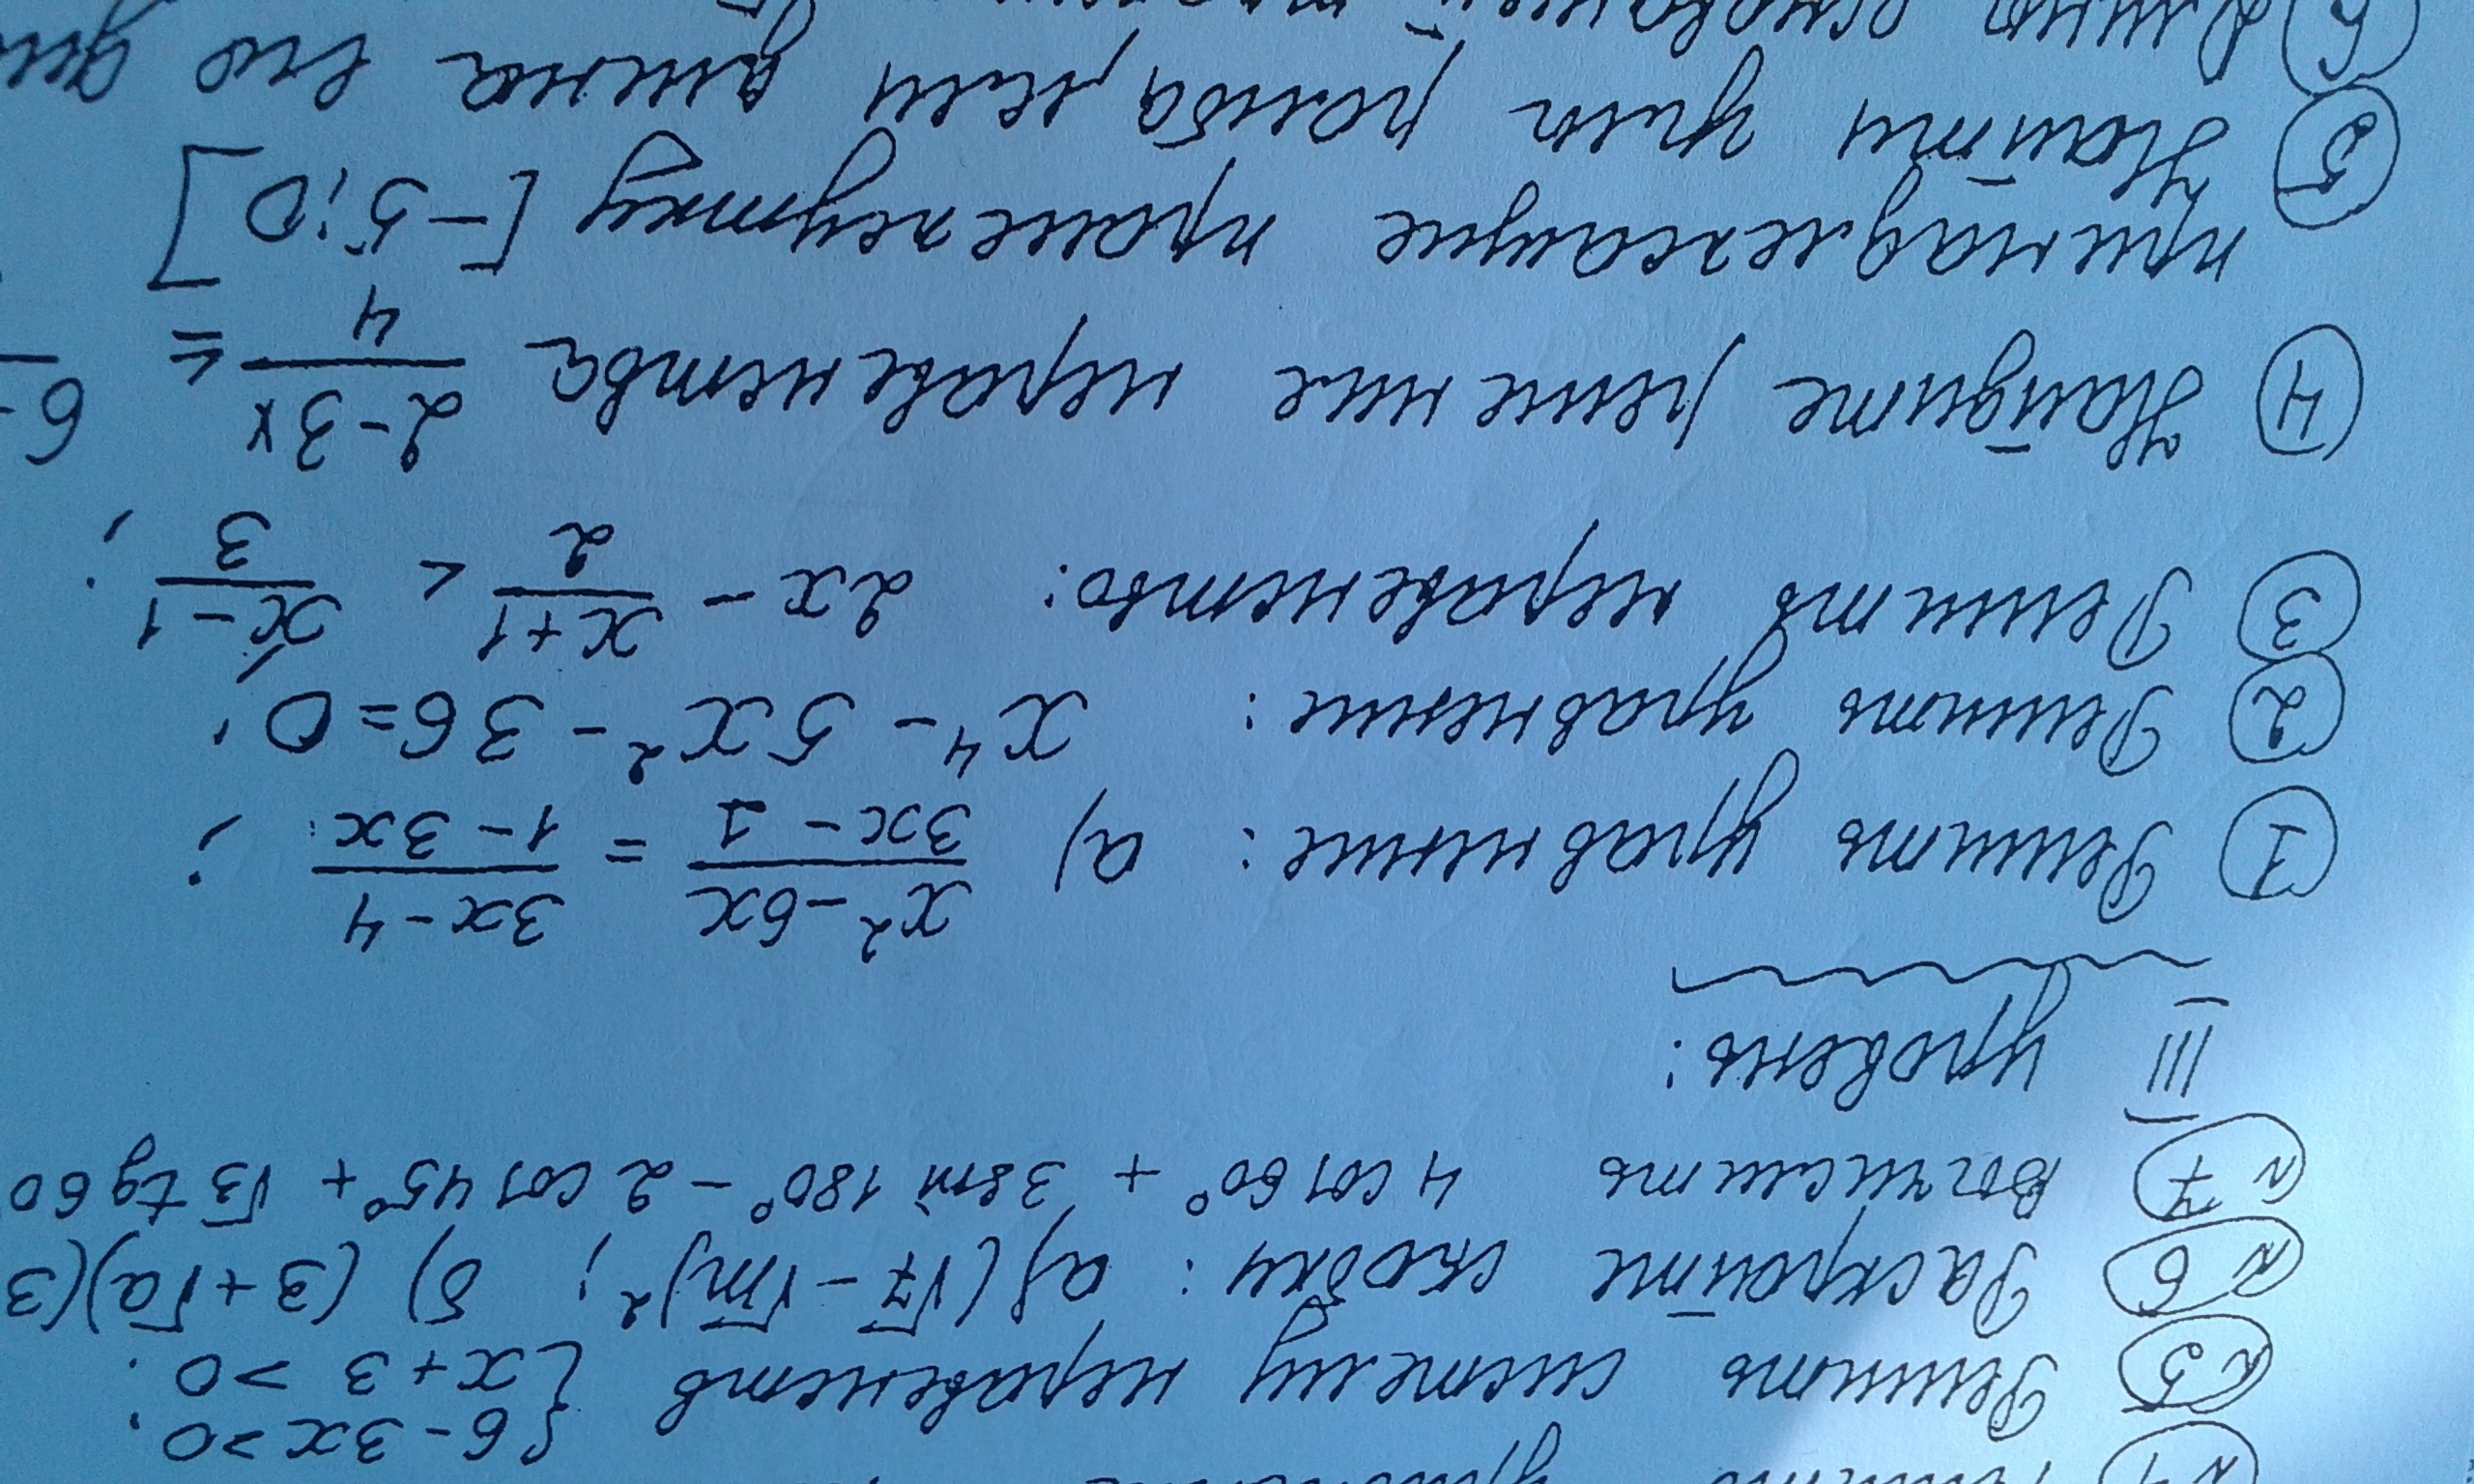 №4 Решить
№5 Решить систему неравенств {6-3x>0, x+3>0.
№6 Раскройте скобки: а) (√7-√m)²; б) (3+√a)(3
№7 Вычислить 4cos60° + 3sin180° - 2cos45° + √3 tg60
III уровень:
① Решить уравнение: а) (x²-6x)/(3x-1) = (3x-4)/(1-3x);
② Решить уравнение: x⁴-5x²-36=0;
③ Решить неравенство: 2x - (x+1)/2 < (x-1)/3;
④ Найдите решение неравенства (2-3x)/4 ≤ 6-
принадлежащие промежутку [-5;0]
⑤ Найти угол ромба, если длина его
⑥ Длина